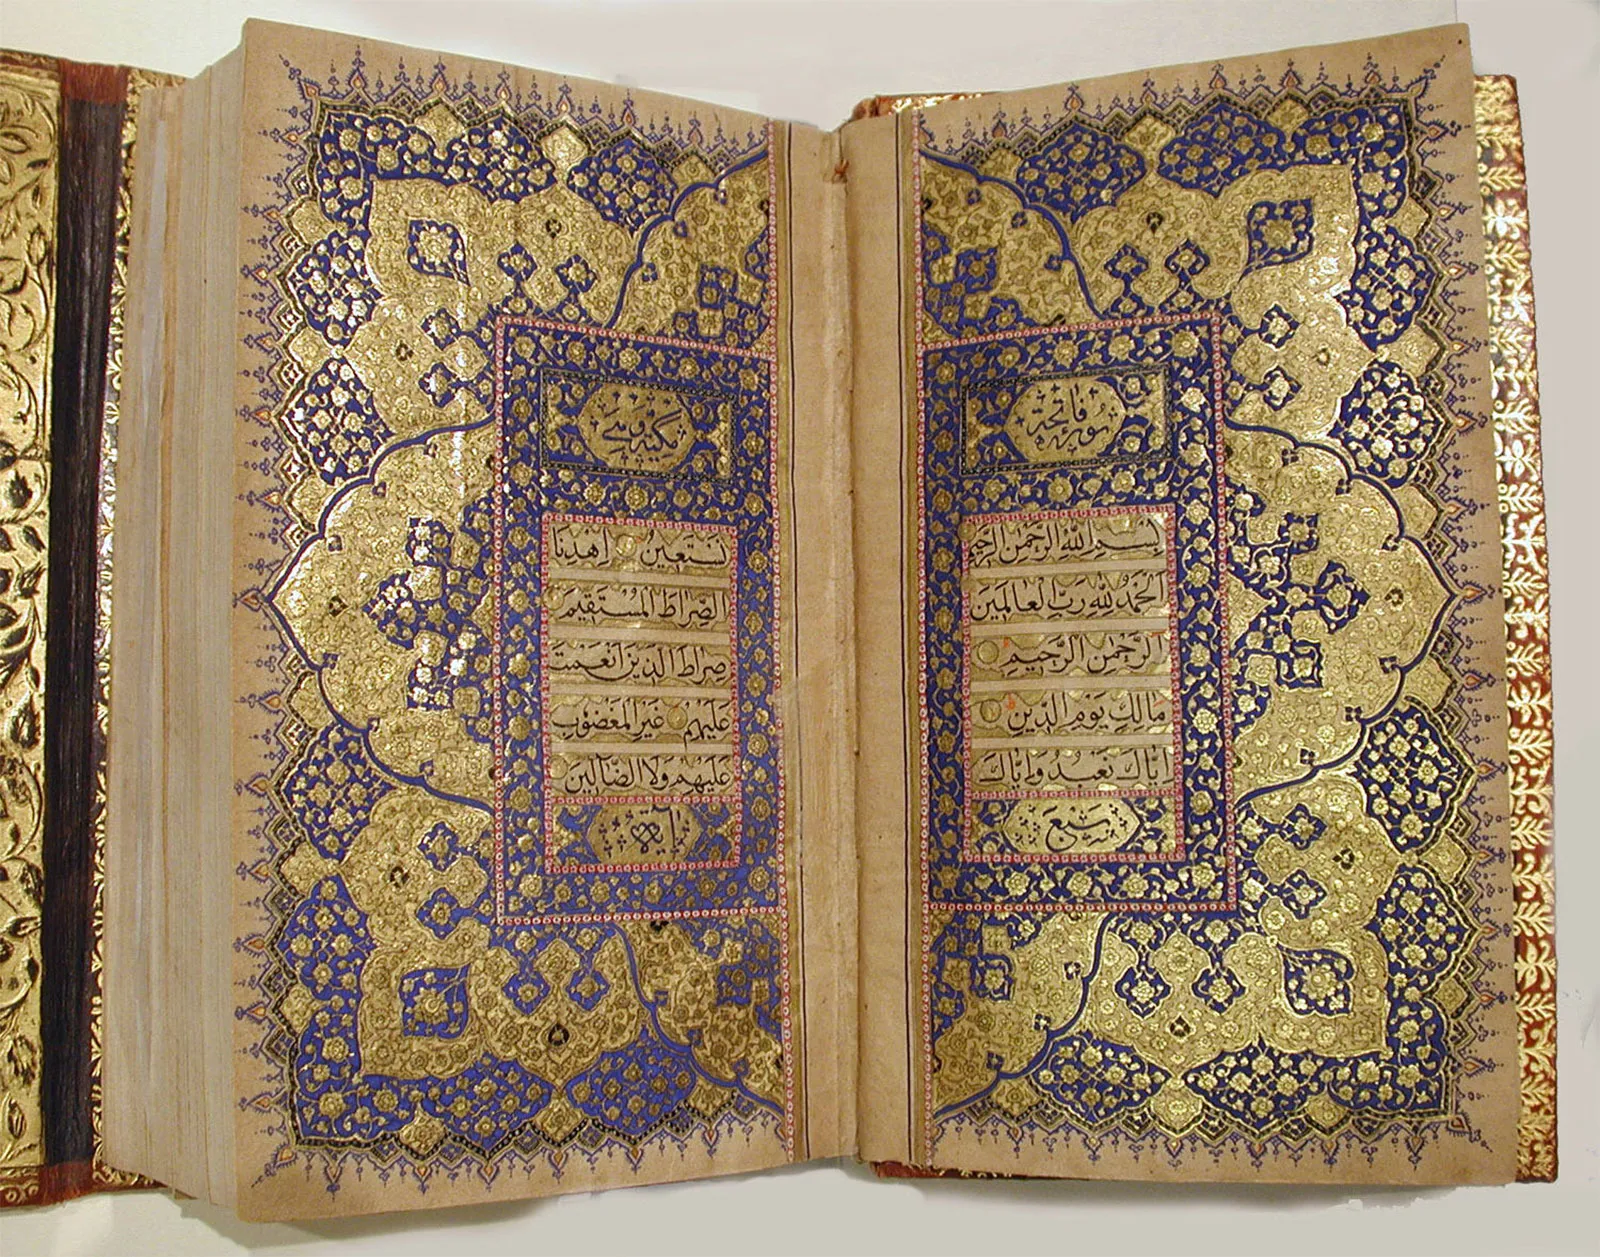 سُورَة فَاتِحَة
بِسْمِ اللّٰهِ الرَّحْمٰنِ الرَّحِيمِ
اَلْحَمْدُ لِلّٰهِ رَبِّ الْعَالَمِينَ
اَلرَّحْمٰنِ الرَّحِيمِ
مَالِكِ يَوْمِ الدِّينِ
اِيَّاكَ نَعْبُدُ وَاِيَّاكَ
سَبْع
مَكِّيَّة وَهِيَ
نَسْتَعِينُ اِهْدِنَا
الصِّرَاطَ الْمُسْتَقِيمَ
صِرَاطَ الَّذِينَ اَنْعَمْتَ
عَلَيْهِمْ غَيْرِ الْمَغْضُوبِ
عَلَيْهِمْ وَلَا الضَّالِّينَ